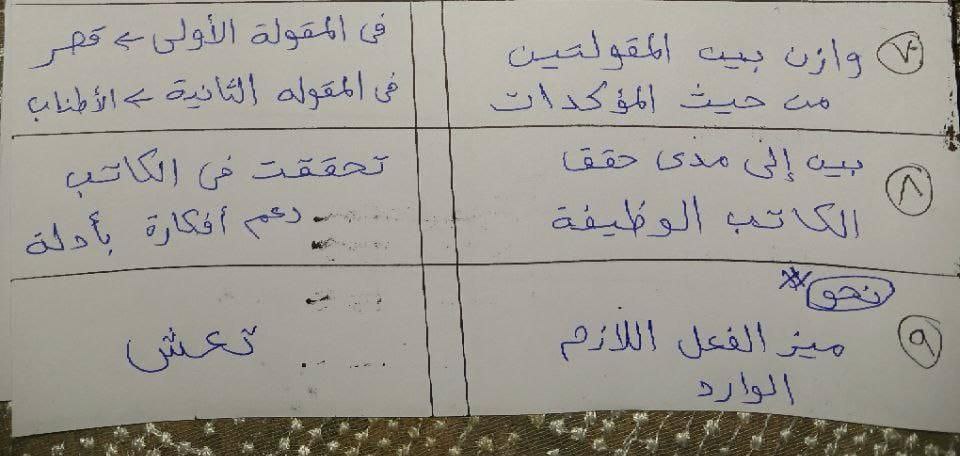 ٧ وازن بين المقولتين
من حيث المؤكدات
فى المقولة الأولى ← قصر
فى المقوله الثانية ← الأطناب
٨ بين إلى مدى حقق
الكاتب الوظيفة
تحققت فى الكاتب
دعم أفكارة بأدلة
نحو **
٩ ميز الفعل اللازم
الوارد
تعش